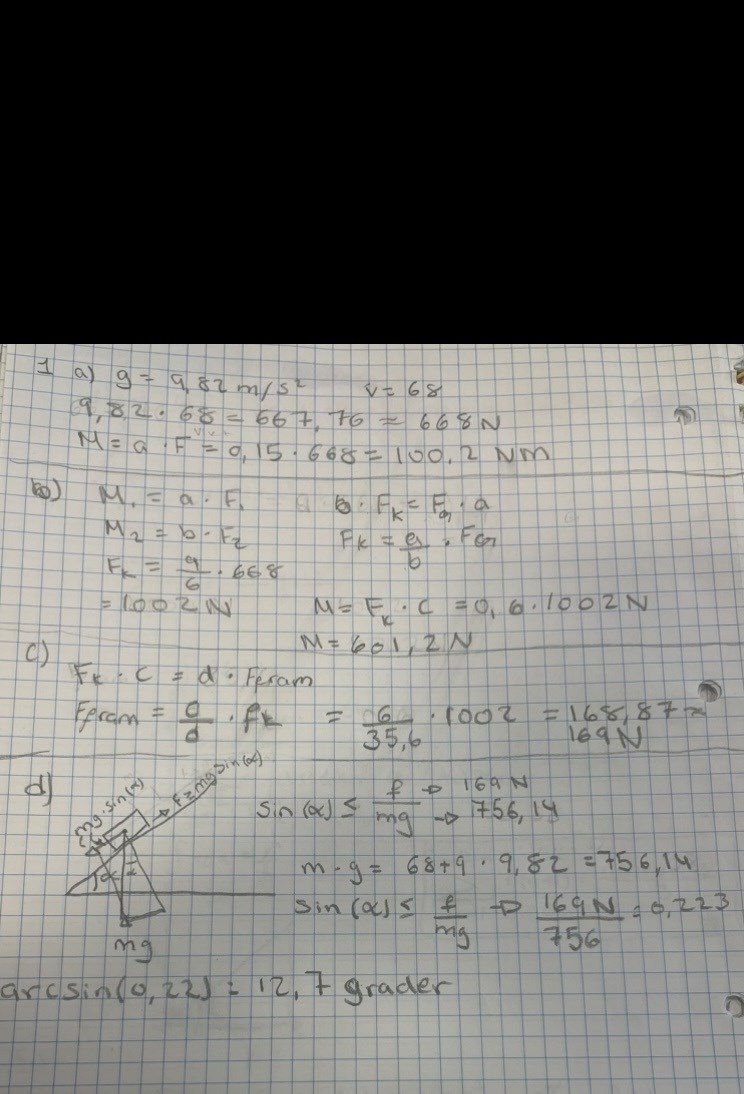 1 a) g = 9,82 m/s² v = 68
9,82 · 68 = 667,76 ≈ 668 N
M = a · F = 0,15 · 668 = 100,2 NM
b) M₁ = a · F₁ b · Fk = FG · a
M₂ = b · F₂ Fk = a/b · FG
Fk = a/6 · 668
= 1002 N M = Fk · C = 0,6 · 1002 N
M = 601,2 N
c)
Fk · C = d · Ffram
Ffram = c/d · fk = 6/35,6 · 1002 = 168,87 ≈ 169 N
d) mg · sin(α) F = mg sin(α)
sin(α) ≤ f/mg → 169 N → 756,14
α
m · g = 68+9 · 9,82 = 756,14
sin(α) ≤ f/mg → 169 N/756 = 0,223
mg
arcsin(0,22) = 12,7 grader